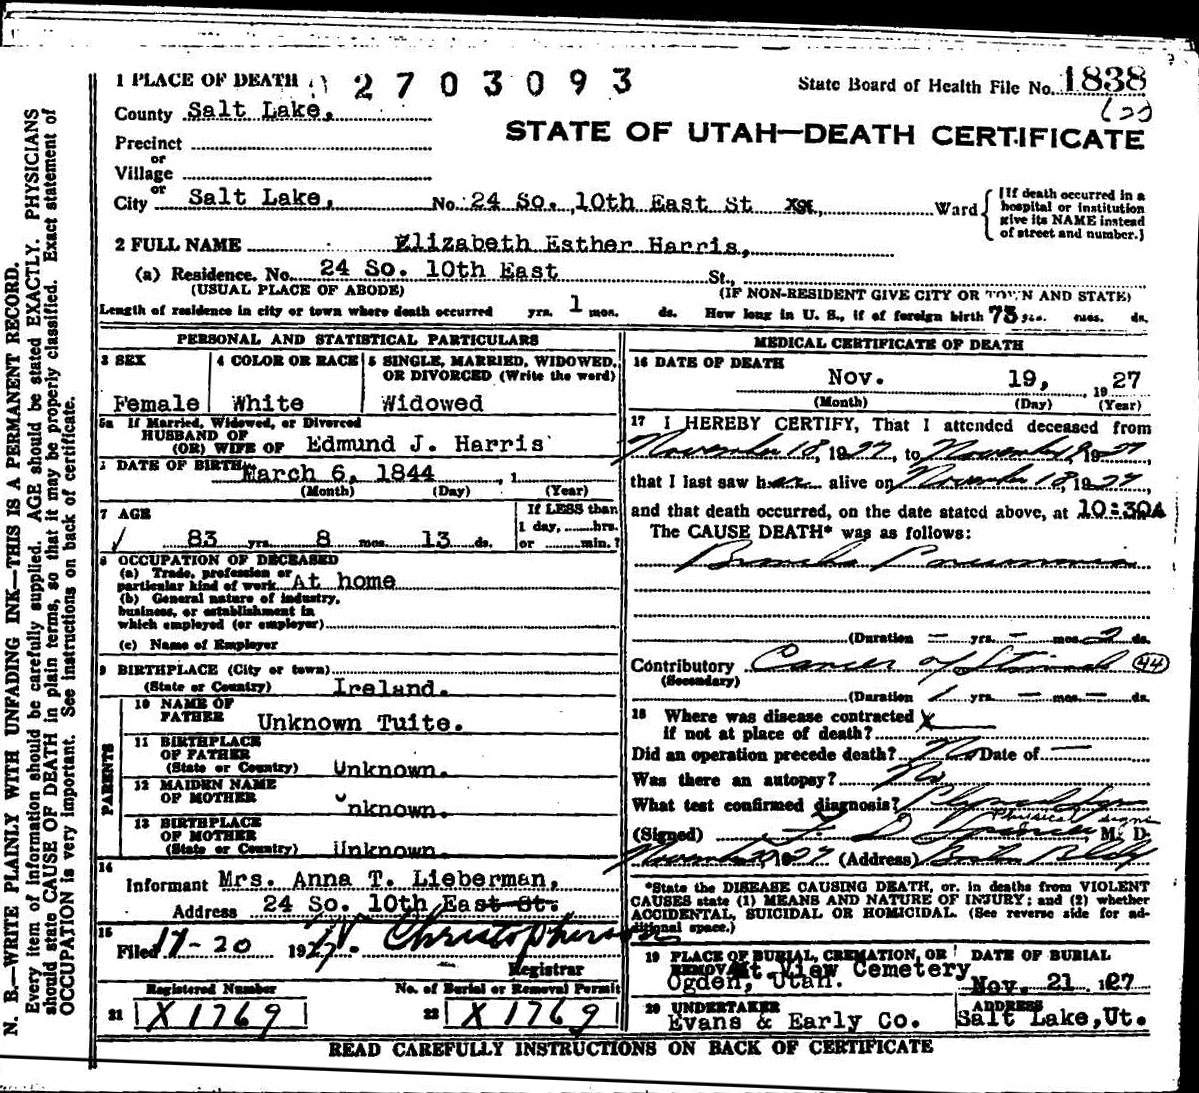 1 PLACE OF DEATH 2703093
State Board of Health File No. 1838
County Salt Lake,
STATE OF UTAH—DEATH CERTIFICATE
Precinct
or
Village
or
City Salt Lake, No. 24 So. 10th East St xx, Ward
[If death occurred in a
hospital or institution
give its NAME instead
of street and number.]
2 FULL NAME Elizabeth Esther Harris,
(a) Residence. No. 24 So. 10th East St.,
(USUAL PLACE OF ABODE) (IF NON-RESIDENT GIVE CITY OR TOWN AND STATE)
Length of residence in city or town where death occurred yrs. 1 mos. ds. How long in U. S., if of foreign birth 73 yrs. mos. ds.
PERSONAL AND STATISTICAL PARTICULARS
3 SEX 4 COLOR OR RACE 5 SINGLE, MARRIED, WIDOWED,
OR DIVORCED (Write the word)
Female White Widowed
5a If Married, Widowed, or Divorced
HUSBAND OF
(OR) WIFE OF Edmund J. Harris
DATE OF BIRTH March 6, 1844, 1
(Month) (Day) (Year)
7 AGE
83 yrs. 8 mos. 13 ds.
If LESS than
1 day, hrs.
or min.?
8 OCCUPATION OF DECEASED
(a) Trade, profession or
particular kind of work At home
(b) General nature of industry,
business, or establishment in
which employed (or employer)
(c) Name of Employer
9 BIRTHPLACE (City or town)
(State or Country) Ireland.
PARENTS
10 NAME OF
FATHER Unknown Tuite.
11 BIRTHPLACE
OF FATHER
(State or Country) Unknown.
12 MAIDEN NAME
OF MOTHER Unknown.
13 BIRTHPLACE
OF MOTHER
(State or Country) Unknown.
14
Informant Mrs. Anna T. Lieberman,
Address 24 So. 10th East St.
15
Filed 11-20 1927. Christopherson
Registrar
Registered Number No. of Burial or Removal Permit
21 X 1769 22 X 1769
MEDICAL CERTIFICATE OF DEATH
16 DATE OF DEATH
Nov. 19, 1927
(Month) (Day) (Year)
17 I HEREBY CERTIFY, That I attended deceased from
November 18, 1927, to November 19, 1927,
that I last saw her alive on November 18, 1927,
and that death occurred, on the date stated above, at 10:30A
The CAUSE DEATH* was as follows:
Broncho Pneumonia
(Duration — yrs. — mos. 2 ds.
Contributory Cancer of Stomach 44
(Secondary)
(Duration 1 yrs. — mos. — ds.
18 Where was disease contracted
if not at place of death? X
Did an operation precede death? No Date of —
Was there an autopsy? No
What test confirmed diagnosis?
Physical signs
(Signed) F D Spencer M. D.
November 1927 (Address)
*State the DISEASE CAUSING DEATH, or, in deaths from VIOLENT
CAUSES state (1) MEANS AND NATURE OF INJURY; and (2) whether
ACCIDENTAL, SUICIDAL OR HOMICIDAL. (See reverse side for ad-
ditional space.)
19 PLACE OF BURIAL, CREMATION, OR DATE OF BURIAL
REMOVAL Mt. View Cemetery
Ogden, Utah. Nov. 21 1927
20 UNDERTAKER ADDRESS
Evans & Early Co. Salt Lake, Ut.
READ CAREFULLY INSTRUCTIONS ON BACK OF CERTIFICATE
N. B.—WRITE PLAINLY WITH UNFADING INK—THIS IS A PERMANENT RECORD.
Every item of information should be carefully supplied. AGE should be stated EXACTLY. PHYSICIANS
should state CAUSE OF DEATH in plain terms, so that it may be properly classified. Exact statement of
OCCUPATION is very important. See instructions on back of certificate.